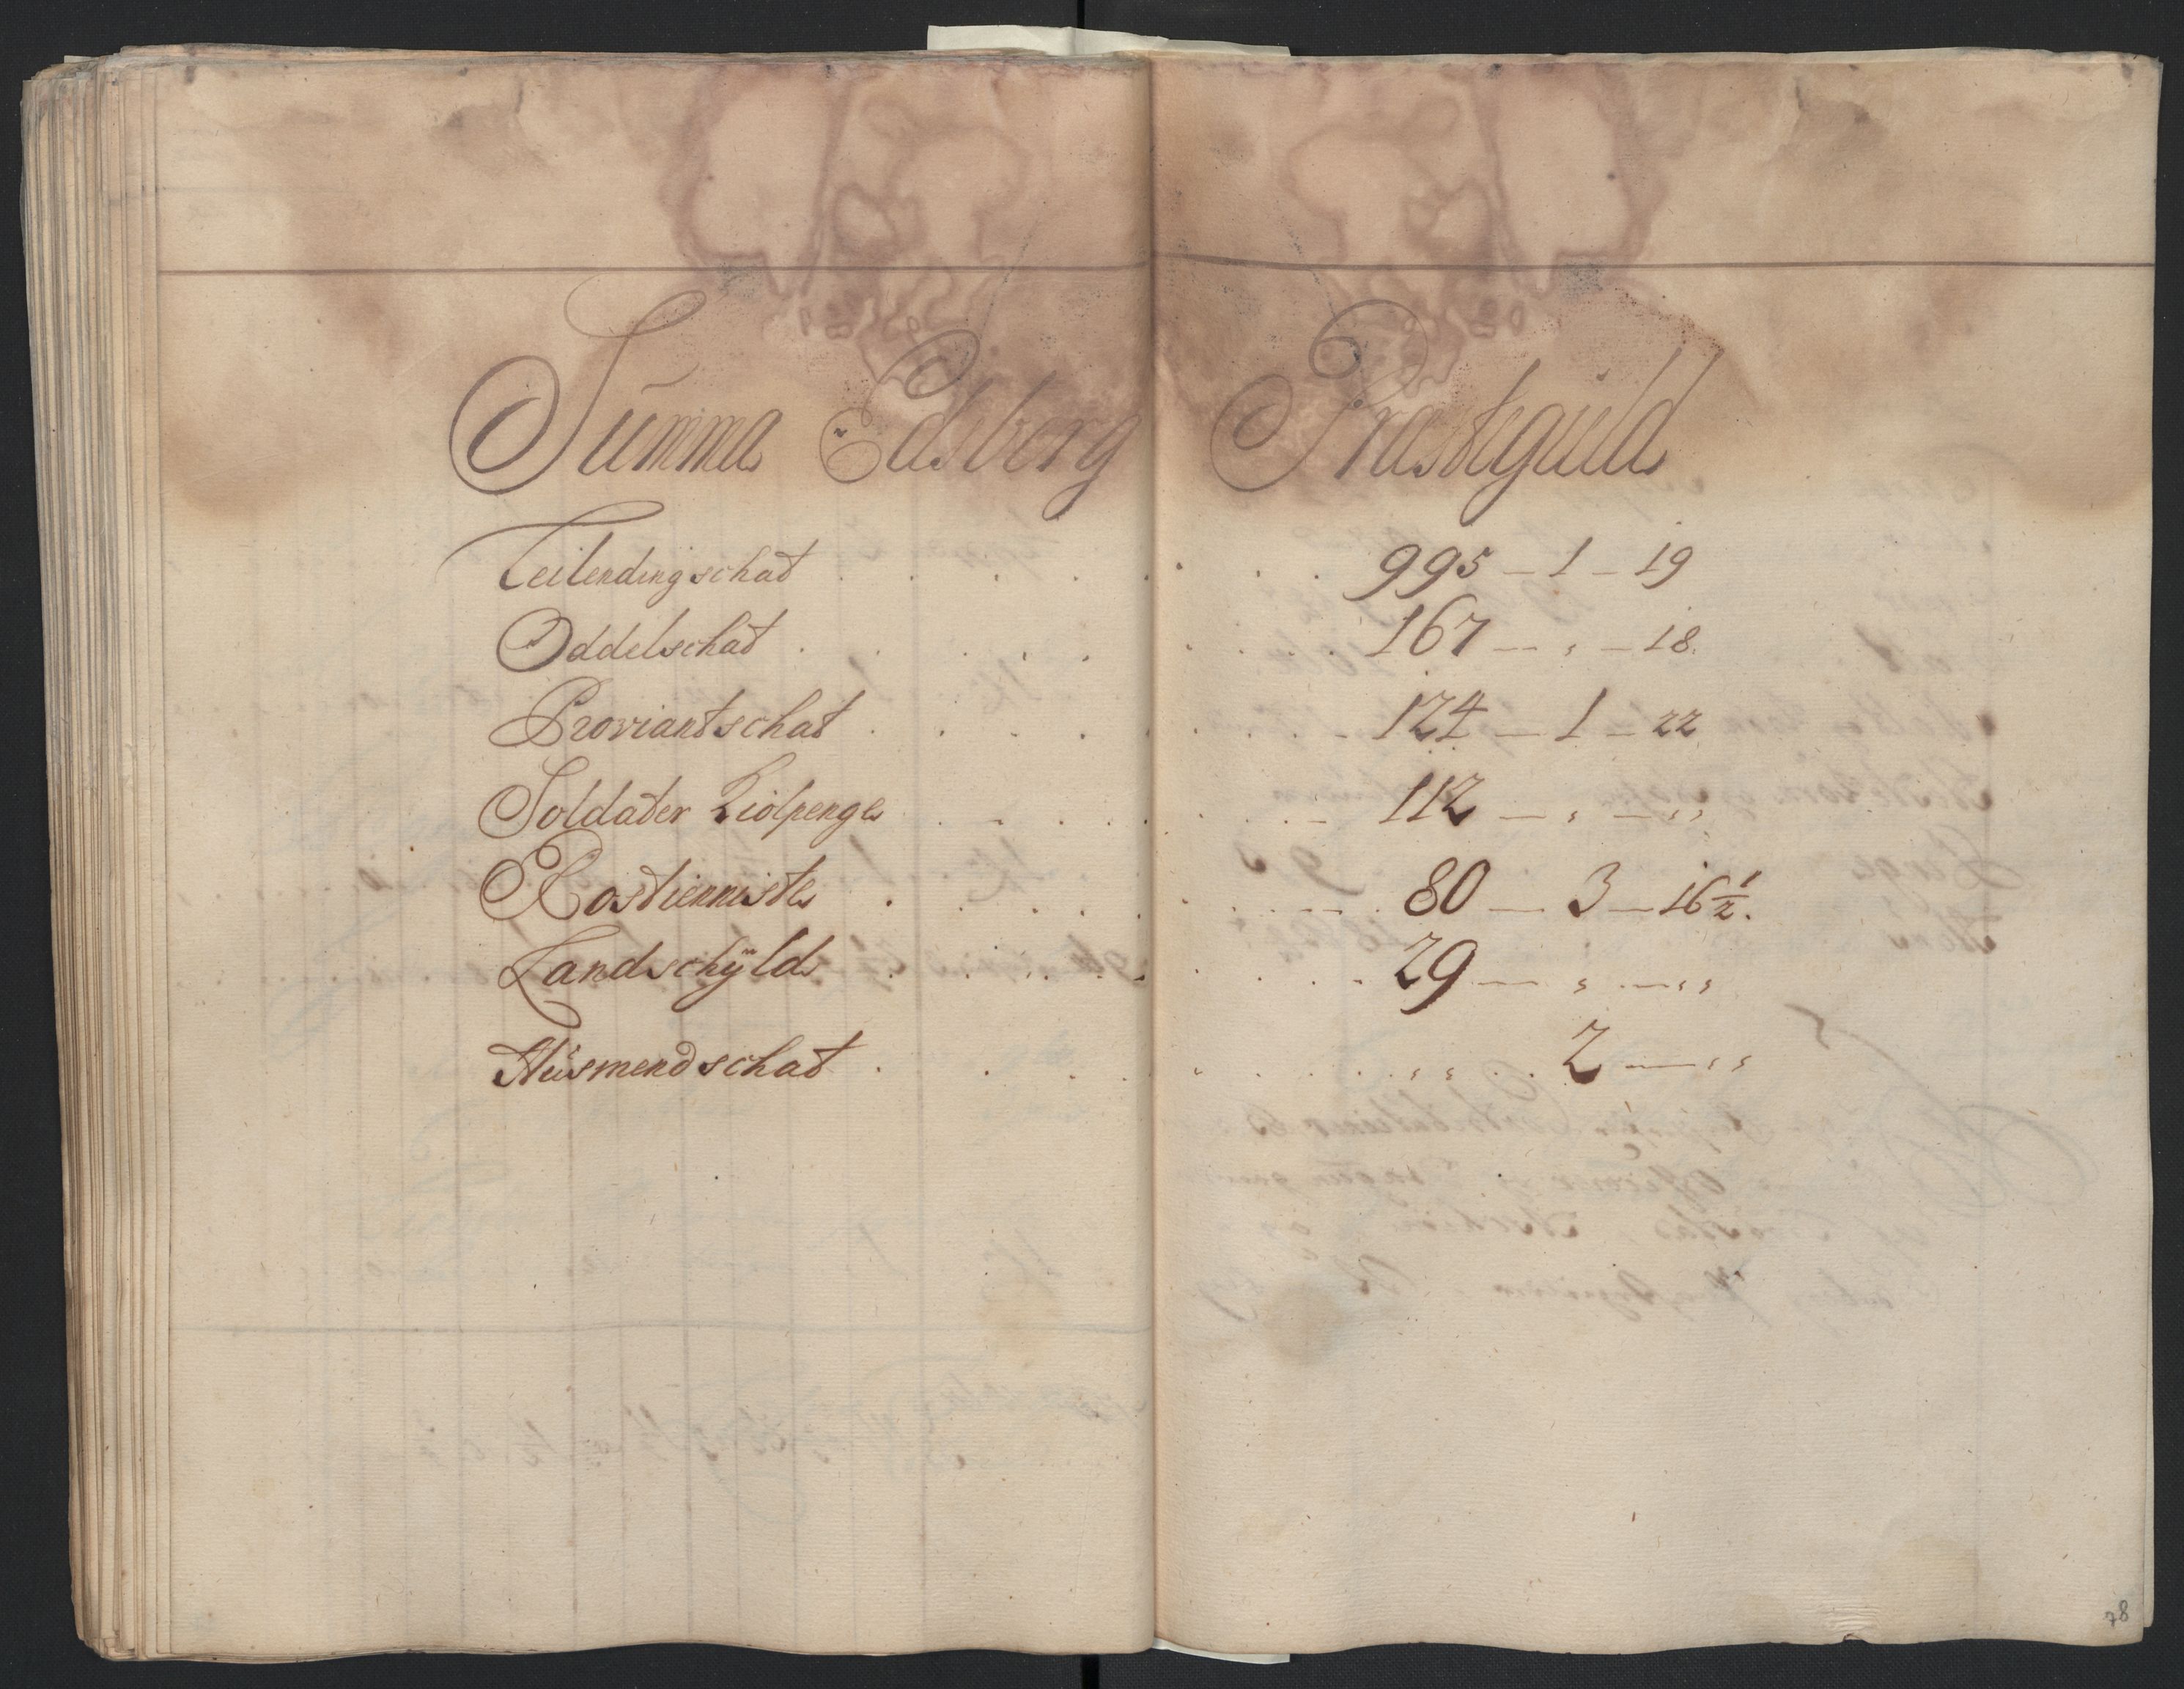 Summa Edsberg Præsteguld
Leilendingschat . . . . . . . 995 – 1 – 19
Oddelschat . . . . . . . . 167 – , – 18.
Proviantschat . . . . . . . . 124 – 1 – 22
Soldater Kiolpenge . . . . . . . 112 – , – , ,
Rostienniste . . . . . . . . 80 – 3 – 16 1/2.
Landschÿld . . . . . . . . 29 – , – , ,
Husmendschat . . . . . . . . , , . . 2 – , ,
78